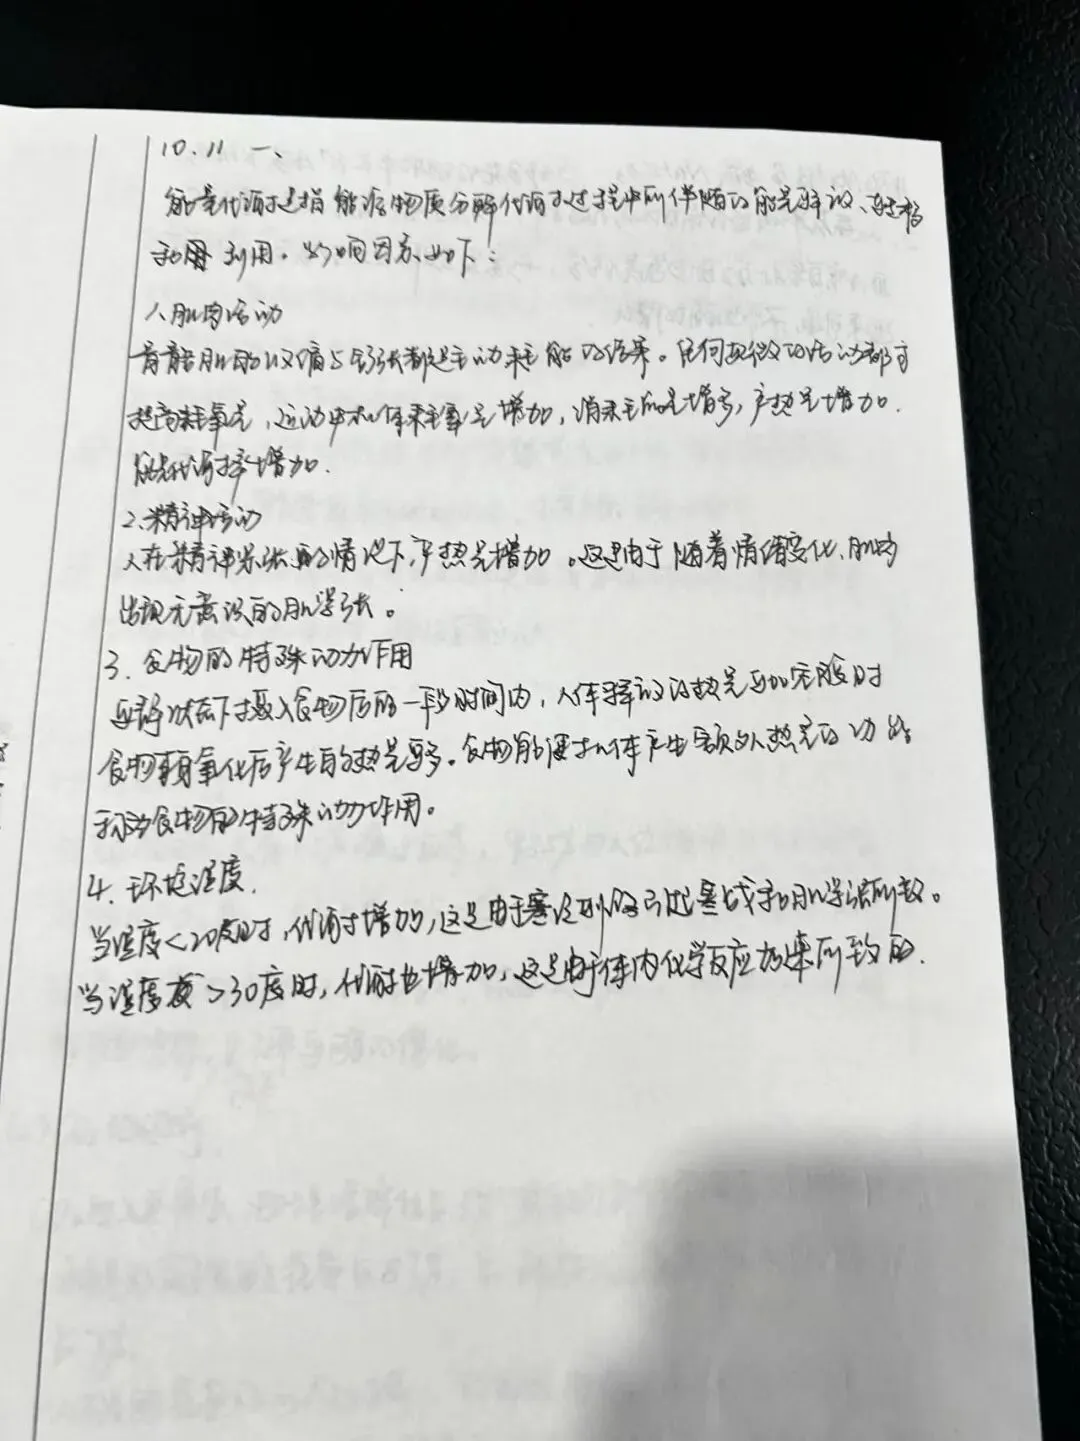 10.11 一、
能量代谢是指能源物质分解代谢过程中所伴随的能量释放、转移
和 利用。影响因素如下：
1、肌肉活动
骨骼肌的收缩与舒张都是主动耗能的结果。任何轻微的活动都可
提高耗氧量，运动中机体耗氧量增加，消耗能量增多，产热量增加.
能量代谢率增加.
2、精神活动
人在精神紧张的情况下，产热量增加。这是由于随着情绪变化、肌肉
出现无意识的肌紧张。
3、食物的特殊动力作用
安静状态下摄入食物后的一段时间内，人体释放的热量比空腹时
食物氧化后产生的热量要多。食物能使机体产生额外热量的功能
称为食物的特殊动力作用。
4. 环境温度.
当温度<20度时，代谢增加，这是由于寒冷刺激引起寒战和肌紧张所致。
当温度>30度时，代谢也增加，这是由于体内化学反应加速所致的.